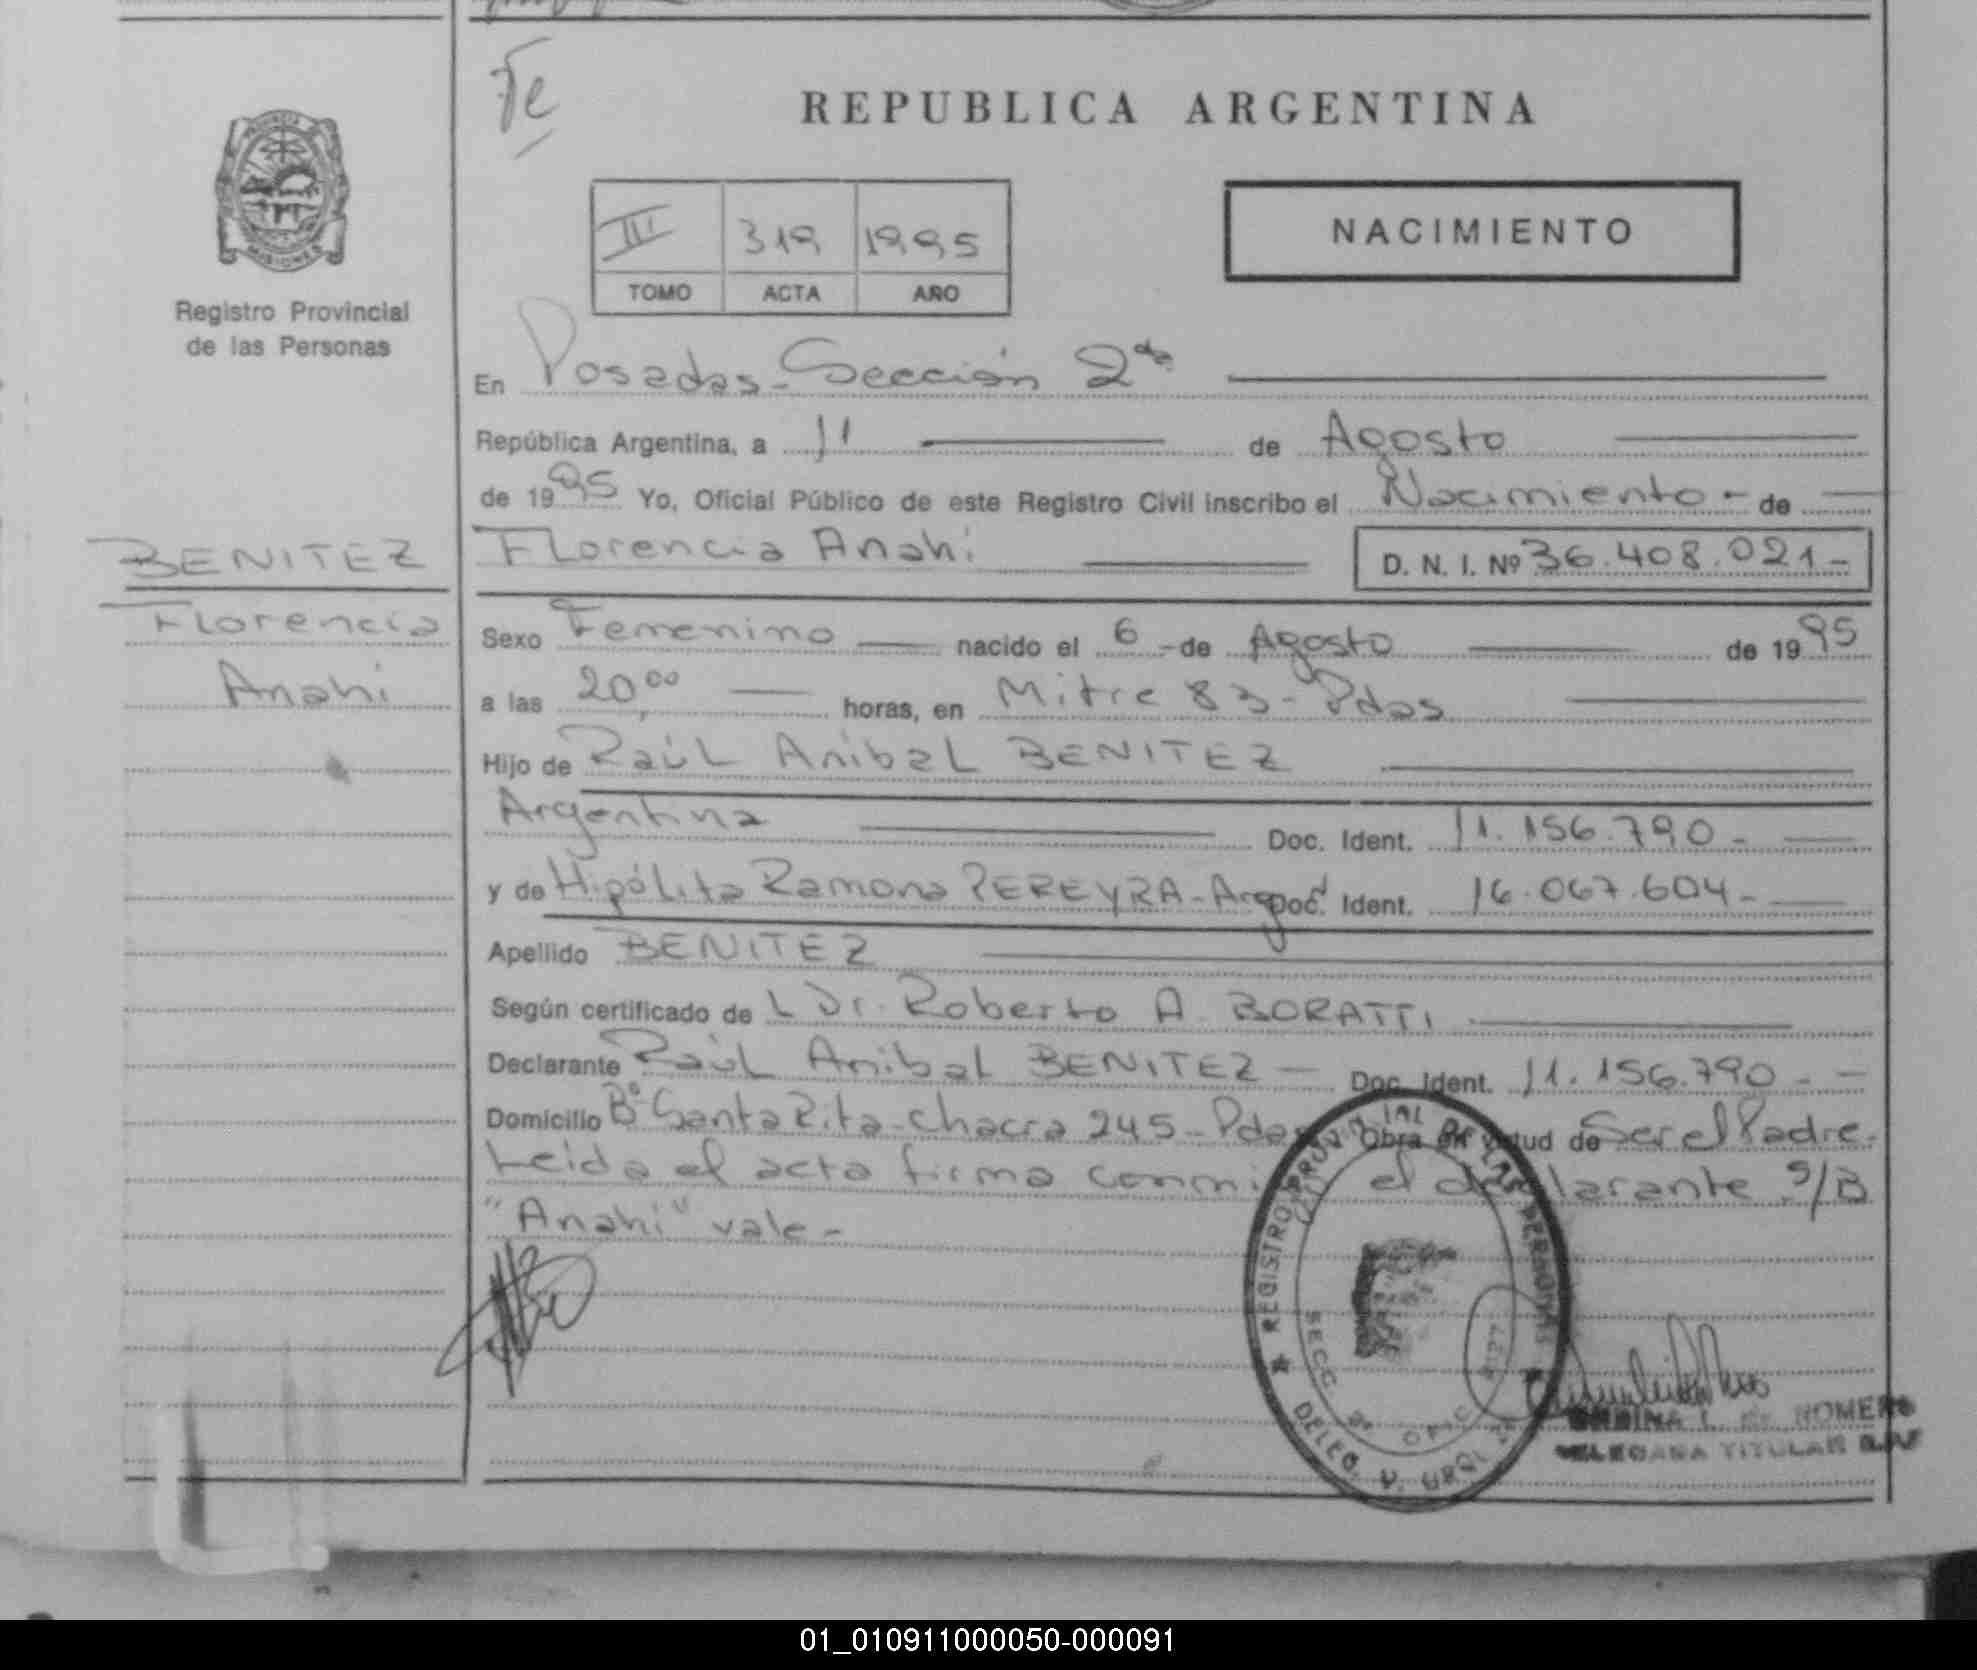 Fe
REPUBLICA ARGENTINA
PROVINCIA DE
MISIONES
Registro Provincial
de las Personas
III 319 1995
TOMO ACTA AÑO
NACIMIENTO
En Posadas - Sección 2da
República Argentina, a 11 de Agosto
de 1995 Yo, Oficial Público de este Registro Civil inscribo el Nacimiento - de
BENITEZ
Florencia
Anahi
Florencia Anahi D. N. I. Nº 36.408.021-
Sexo Femenino nacido el 6 - de Agosto de 1995
a las 20,00 horas, en Mitre 83 - Pdas
Hijo de Raúl Anibal BENITEZ
Argentina Doc. Ident. 11.156.790-
y de Hipólita Ramona PEREYRA - Arg Doc. Ident. 16.067.604-
Apellido BENITEZ
Según certificado de L Dr. Roberto A. BORATTI
Declarante Raúl Anibal BENITEZ - Doc. Ident. 11.156.790.-
Domicilio Bº Santa Rita - Chacra 245 - Pdas Obra en virtud de Ser el Padre.
Leida el acta firma conmi el declarante. S/B
"Anahi" vale -
REGISTRO PROVINCIAL DE LAS PERSONAS
SECC. 2ª
DELEG.
ROMERO
TITULAR
01_010911000050-000091